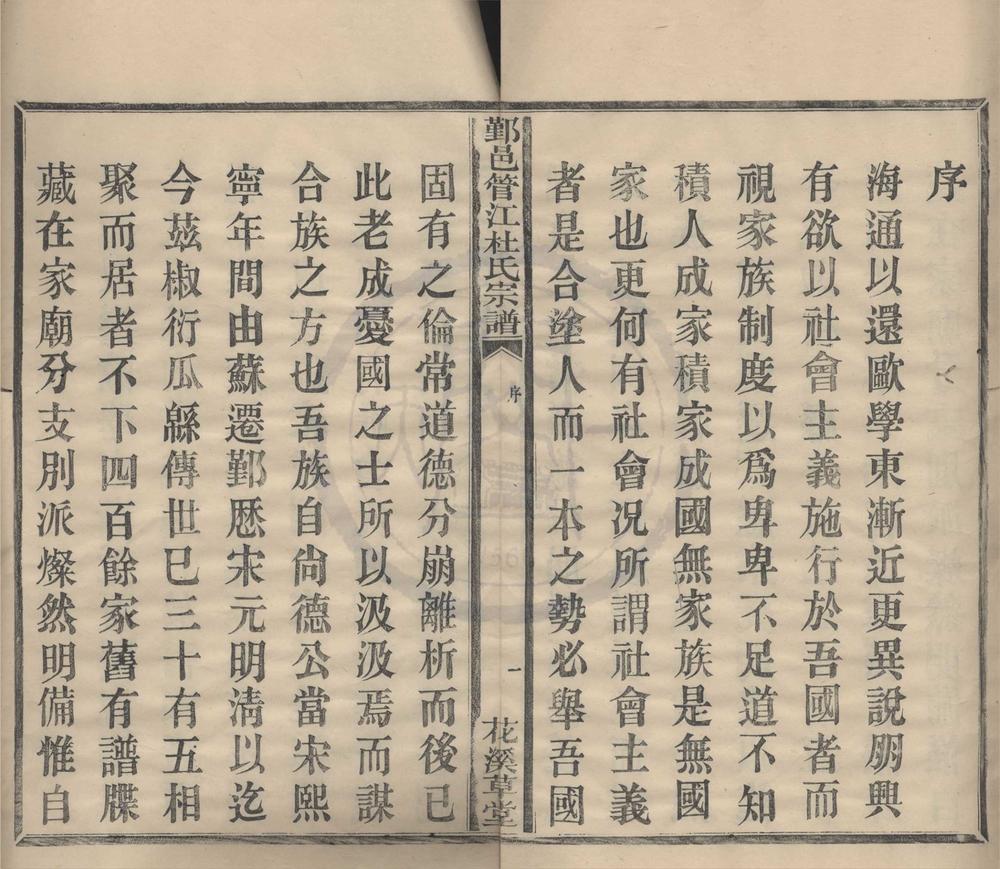 序
海通以還歐學東漸近更異說朋興
有欲以社會主義施行於吾國者而
視家族制度以爲卑卑不足道不知
積人成家積家成國無家族是無國
家也更何有社會况所謂社會主義
者是合塗人而一本之勢必舉吾國
鄞邑管江杜氏宗譜
序
一
花溪草堂
固有之倫常道德分崩離析而後已
此老成憂國之士所以汲汲焉而謀
合族之方也吾族自尙德公當宋熙
寧年間由蘇遷鄞厯宋元明淸以迄
今茲椒衍瓜緜傳世已三十有五相
聚而居者不下四百餘家舊有譜牒
藏在家廟分支別派燦然明備惟自